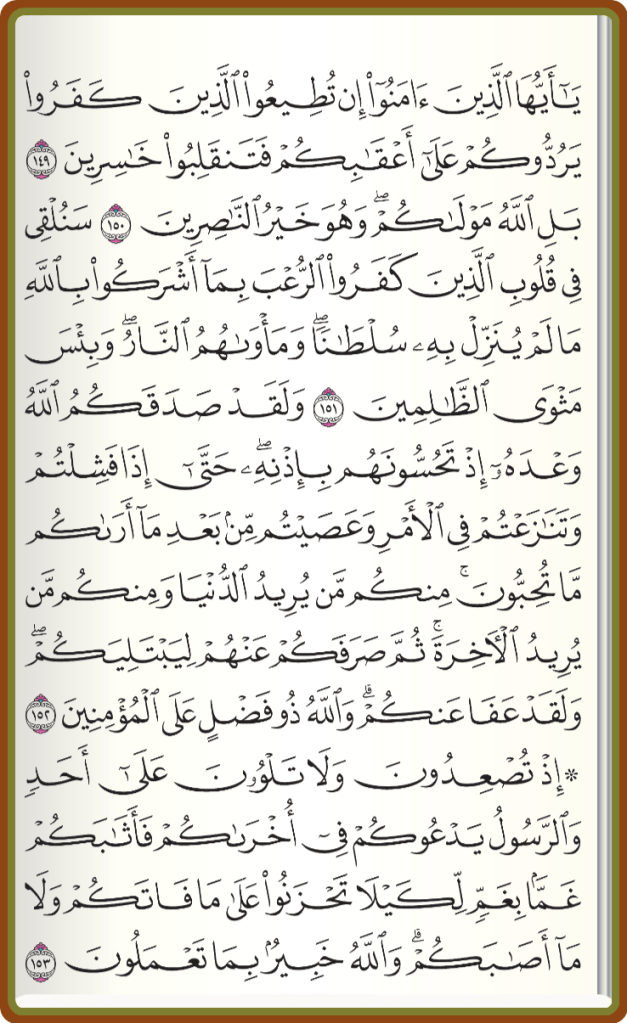 يَـٰٓأَيُّهَا ٱلَّذِينَ ءَامَنُوٓا۟ إِن تُطِيعُوا۟ ٱلَّذِينَ كَفَرُوا۟
يَرُدُّوكُمْ عَلَىٰٓ أَعْقَـٰبِكُمْ فَتَنقَلِبُوا۟ خَـٰسِرِينَ ١٤٩
بَلِ ٱللَّهُ مَوْلَىٰكُمْ ۖ وَهُوَ خَيْرُ ٱلنَّـٰصِرِينَ ١٥٠ سَنُلْقِى
فِى قُلُوبِ ٱلَّذِينَ كَفَرُوا۟ ٱلرُّعْبَ بِمَآ أَشْرَكُوا۟ بِٱللَّهِ
مَا لَمْ يُنَزِّلْ بِهِۦ سُلْطَـٰنًا ۖ وَمَأْوَىٰهُمُ ٱلنَّارُ ۖ وَبِئْسَ
مَثْوَى ٱلظَّـٰلِمِينَ ١٥١ وَلَقَدْ صَدَقَكُمُ ٱللَّهُ
وَعْدَهُۥٓ إِذْ تَحُسُّونَهُم بِإِذْنِهِۦ ۖ حَتَّىٰٓ إِذَا فَشِلْتُمْ
وَتَنَـٰزَعْتُمْ فِى ٱلْأَمْرِ وَعَصَيْتُم مِّنۢ بَعْدِ مَآ أَرَىٰكُم
مَّا تُحِبُّونَ ۚ مِنكُم مَّن يُرِيدُ ٱلدُّنْيَا وَمِنكُم مَّن
يُرِيدُ ٱلْـَٔاخِرَةَ ۚ ثُمَّ صَرَفَكُمْ عَنْهُمْ لِيَبْتَلِيَكُمْ ۖ
وَلَقَدْ عَفَا عَنكُمْ ۗ وَٱللَّهُ ذُو فَضْلٍ عَلَى ٱلْمُؤْمِنِينَ ١٥٢
* إِذْ تُصْعِدُونَ وَلَا تَلْوُۥنَ عَلَىٰٓ أَحَدٍ
وَٱلرَّسُولُ يَدْعُوكُمْ فِىٓ أُخْرَىٰكُمْ فَأَثَـٰبَكُمْ
غَمًّۢا بِغَمٍّ لِّكَيْلَا تَحْزَنُوا۟ عَلَىٰ مَا فَاتَكُمْ وَلَا
مَآ أَصَـٰبَكُمْ ۗ وَٱللَّهُ خَبِيرٌۢ بِمَا تَعْمَلُونَ ١٥٣